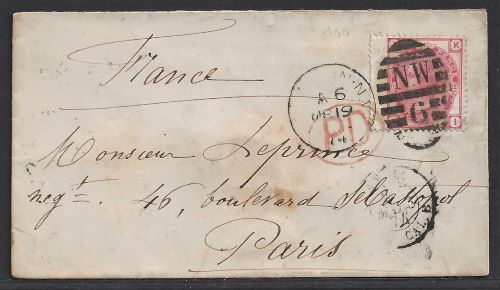 France
Monsieur Leprince
negt. 46, boulevard Sébastopol
Paris
N.W
6
A 6
MR 19
74
PD
K
I
CAL. B
100